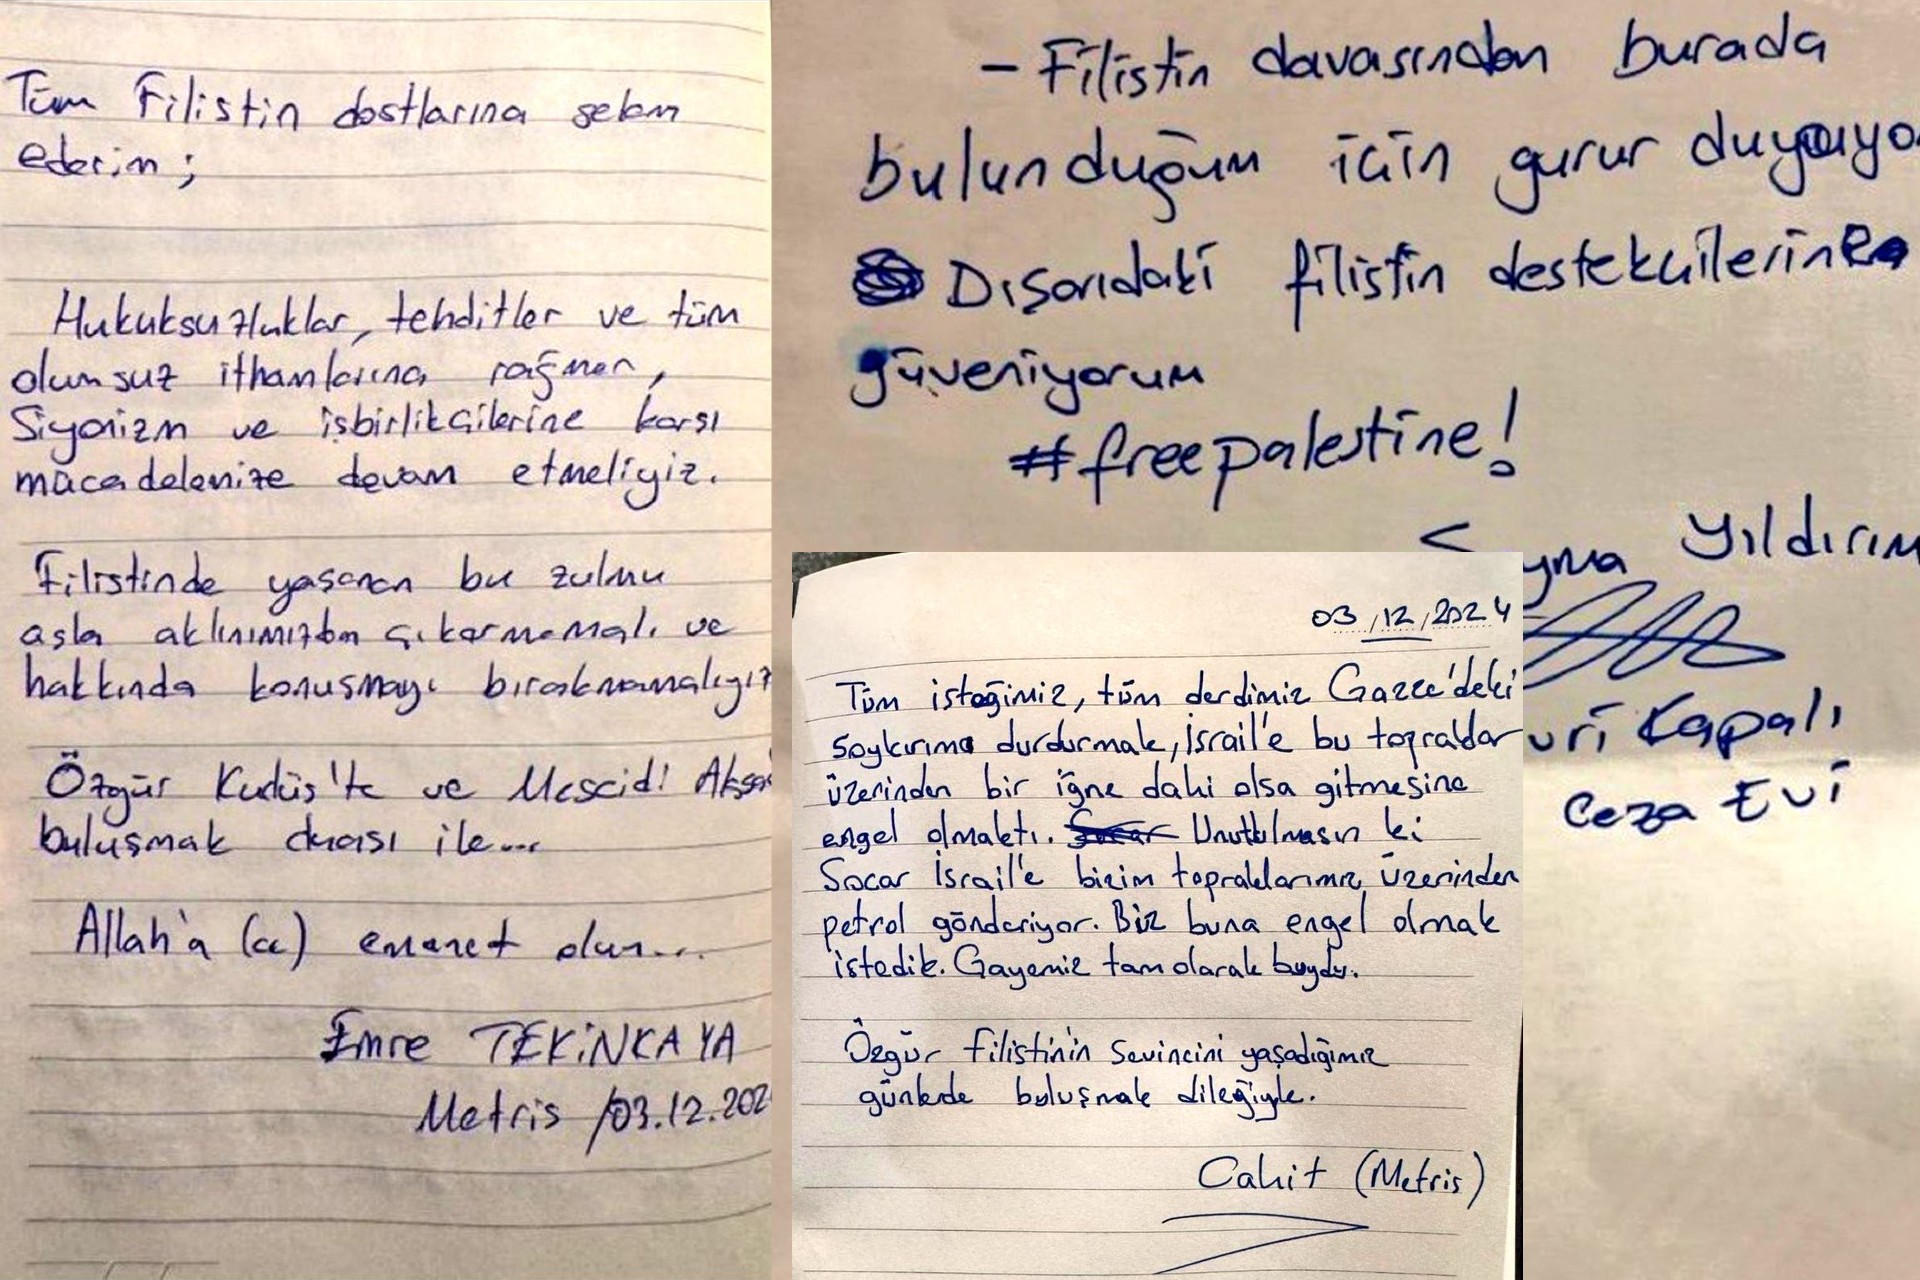 Tüm Filistin dostlarına selam
ederim;
Hukuksuzluklar, tehditler ve tüm
olumsuz ithamlarına rağmen,
Siyonizm ve işbirlikçilerine karşı
mücadelemize devam etmeliyiz.
Filistinde yaşanan bu zulmu
asla aklınımızdan çıkarmamalı ve
hakkında konuşmayı bırakmamalıyız
Özgür Kudüs'te ve Mescid-i Aksa
buluşmak duası ile...
Allah'a (cc) emanet olun...
Emre TEKİNKAYA
Metris /03.12.202
- Filistin davasından burada
bulunduğum için gurur duyuyo
Dışarıdaki filistin destekçilerine
güveniyorum
#freepalestine!
yma Yıldırım
uri Kapalı
Ceza Evi
03/12/2024
Tüm isteğimiz, tüm derdimiz Gazze'deki
soykırımı durdurmak, İsrail'e bu topraklar
üzerinden bir iğne dahi olsa gitmesine
engel olmaktı. Unutulmasın ki
Socar İsrail'e bizim topraklarımız üzerinden
petrol gönderiyor. Biz buna engel olmak
istedik. Gayemiz tam olarak buydu.
Özgür Filistinin sevincini yaşadığımız
günlerde buluşmak dileğiyle.
Cahit (Metris)